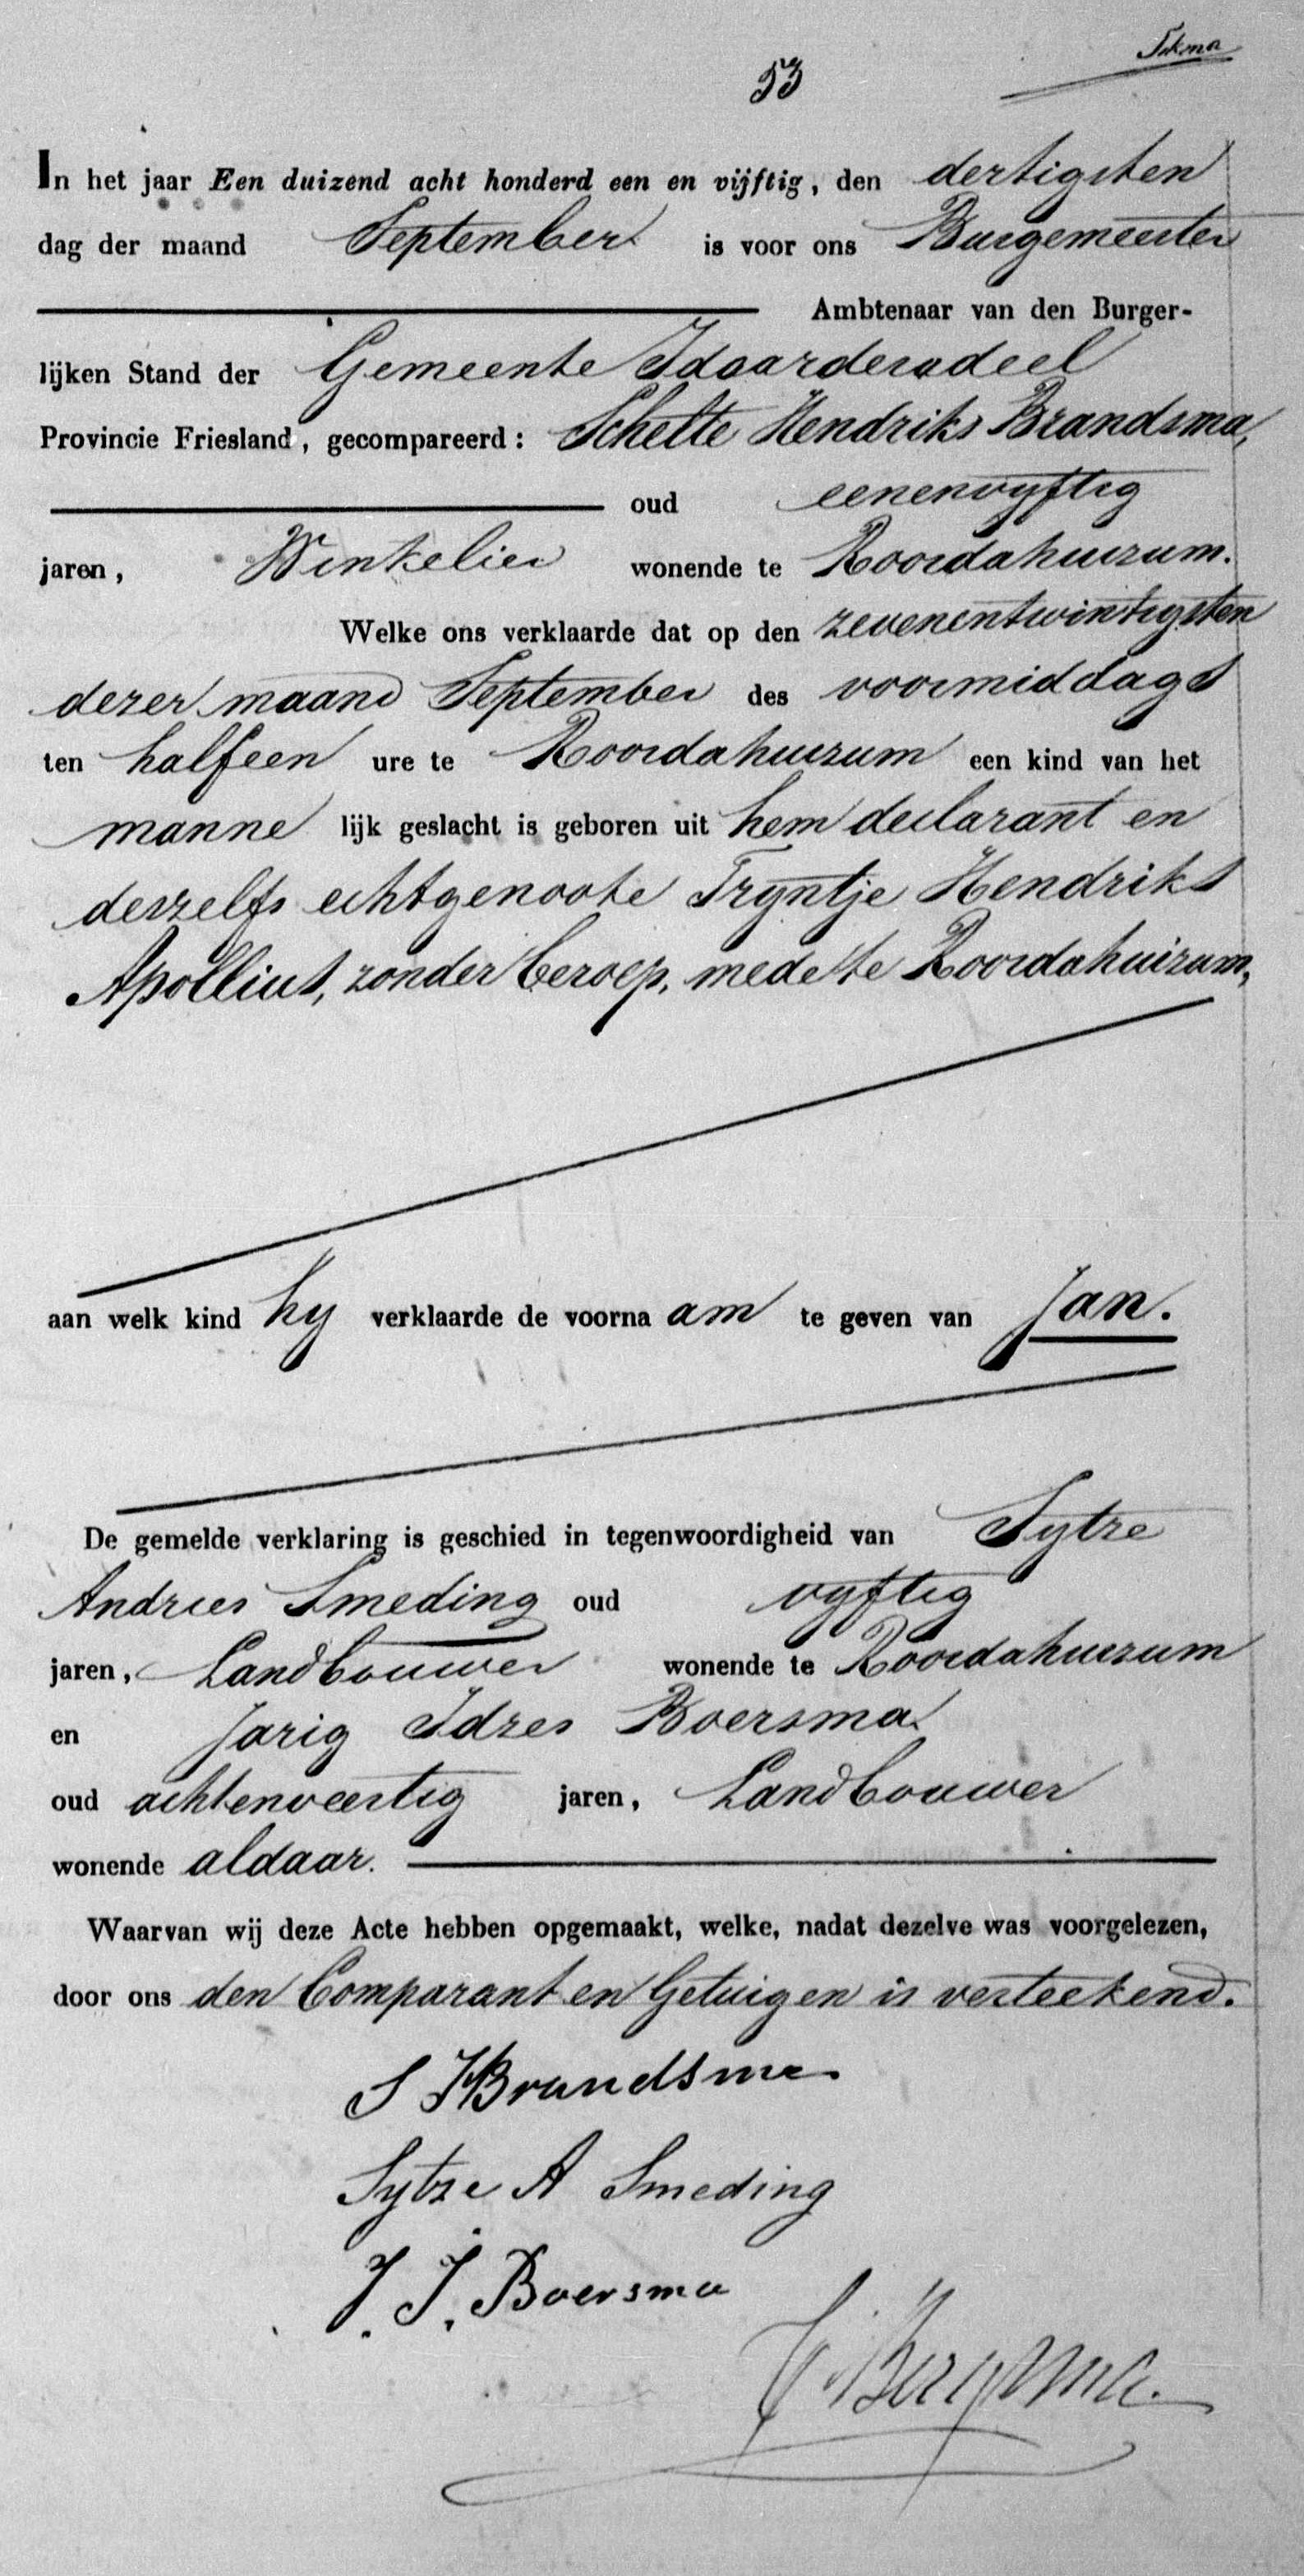 53
In het jaar Een duizend acht honderd een en vijftig, den dertigsten
dag der maand September is voor ons Burgemeester
Ambtenaar van den Burger-
lijken Stand der Gemeente Idaarderadeel
Provincie Friesland, gecompareerd: Schelte Hendriks Brandsma,
oud eenenvyftig
jaren, Winkelier wonende te Roordahuizum.
Welke ons verklaarde dat op den zevenentwintigsten
dezer maand September des voormiddags
ten halfeen ure te Roordahuizum een kind van het
manne lijk geslacht is geboren uit hem declarant en
deszelfs echtgenoote Tryntje Hendriks
Apollius, zonder beroep, mede te Roordahuizum,
aan welk kind hy verklaarde de voorna am te geven van Jan.
De gemelde verklaring is geschied in tegenwoordigheid van Sytze
Andries Smeding oud vyftig
jaren, Landbouwer wonende te Roordahuizum
en Jarig Idzes Boersma
oud achtenveertig jaren, Landbouwer
wonende aldaar.
Waarvan wij deze Acte hebben opgemaakt, welke, nadat dezelve was voorgelezen,
door ons den Comparant en Getuigen is verteekend.
S H Brandsma
Sytze A Smeding
J. J. Boersma
Bergsma.